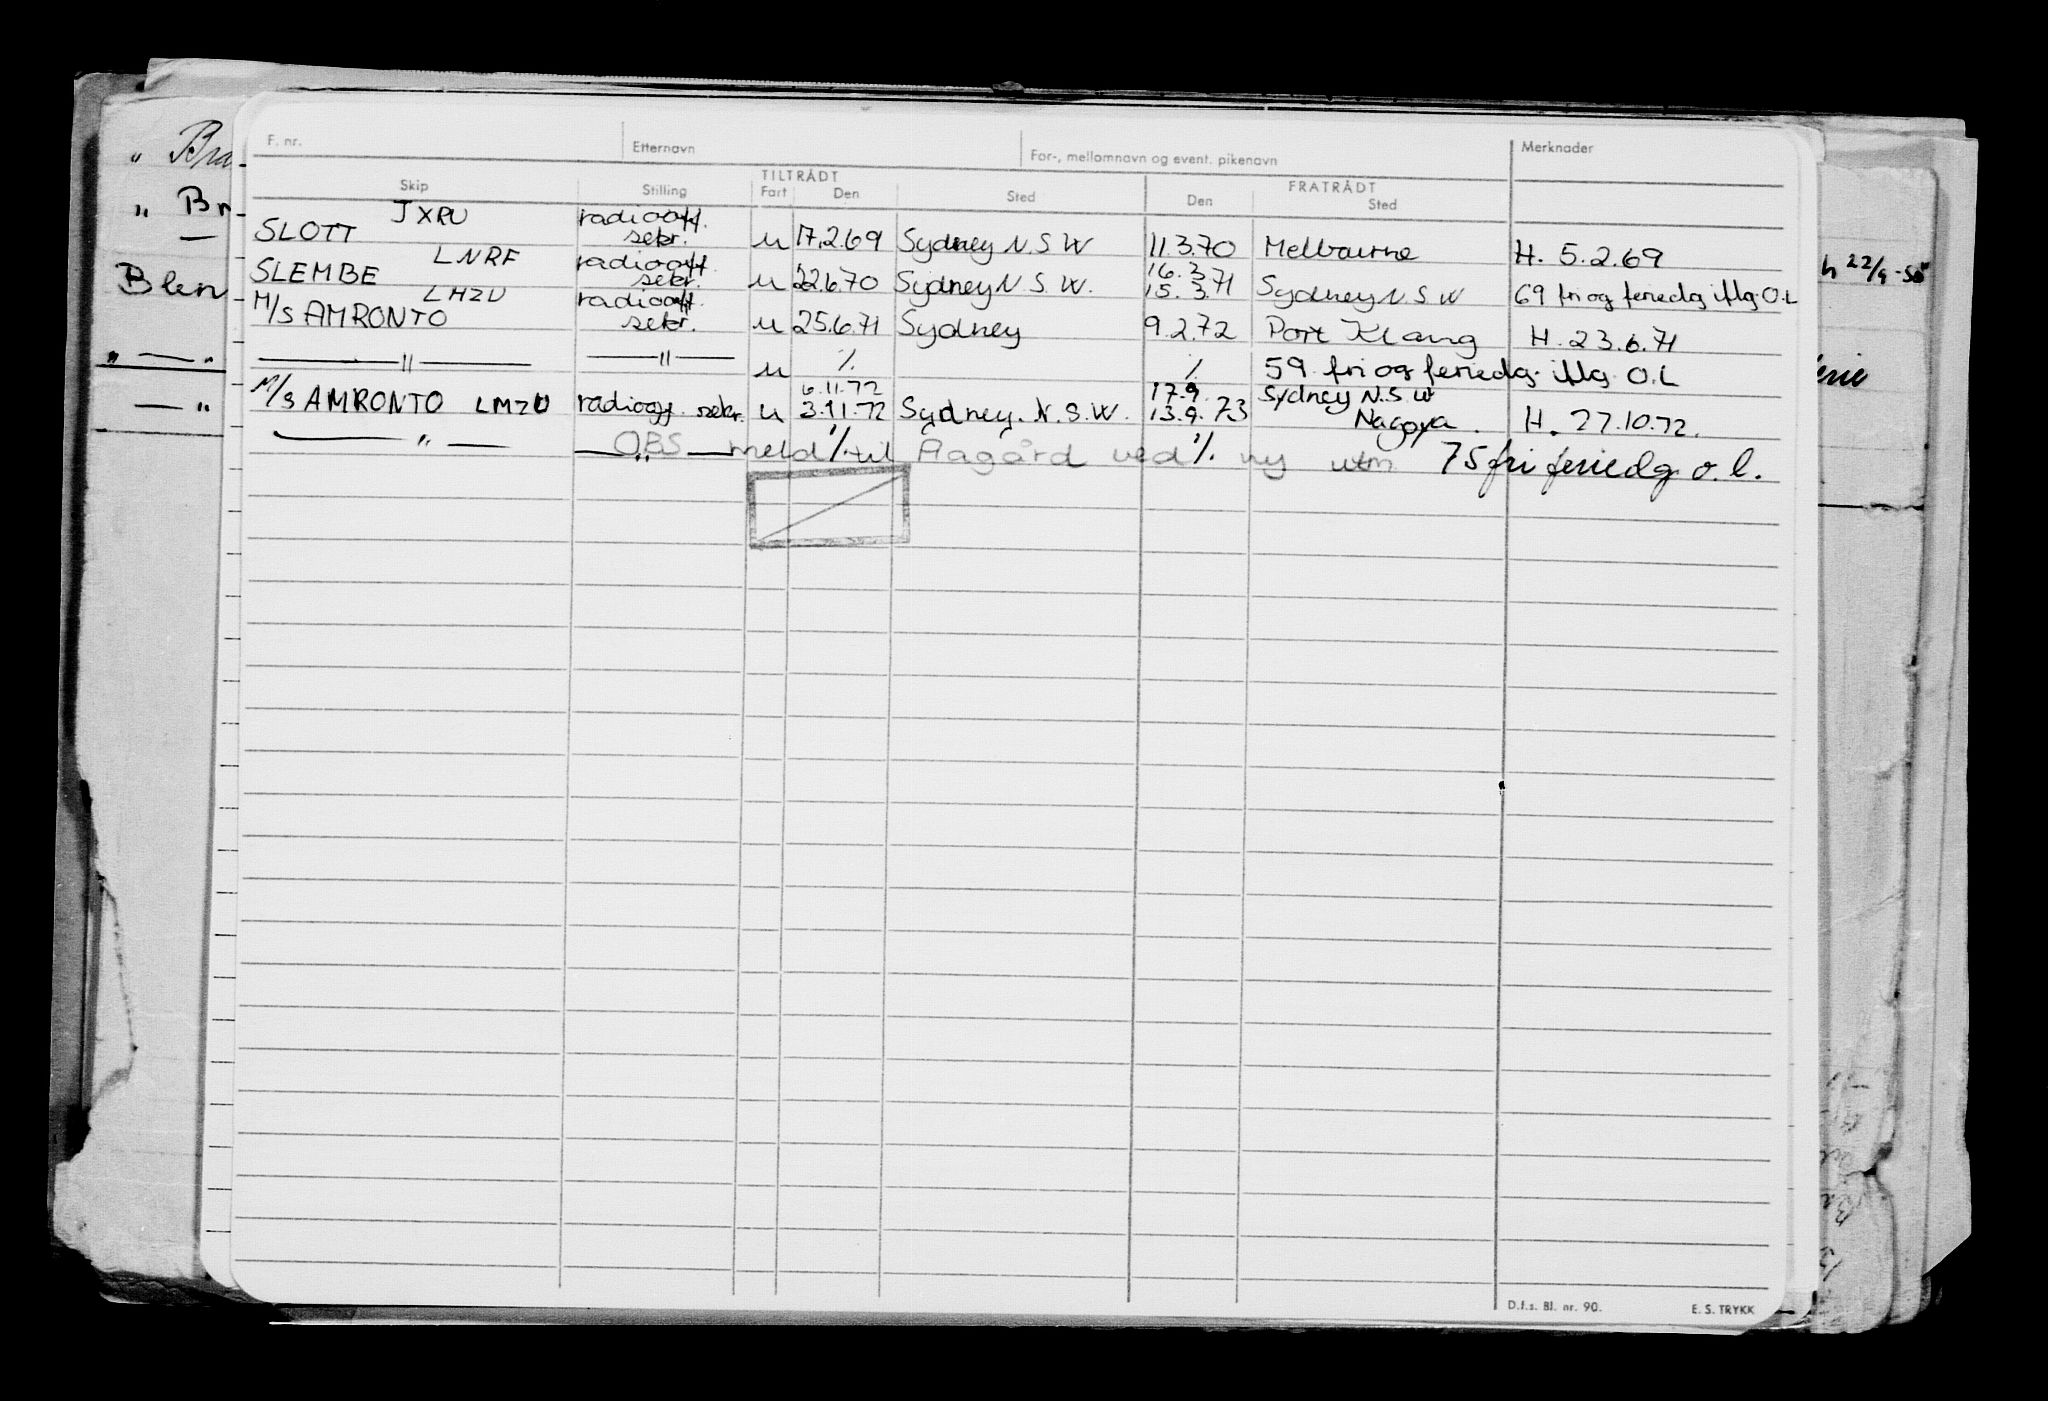 F. nr. Etternavn For-, mellomnavn og event. pikenavn Merknader
TILTRÅDT FRATRÅDT
Skip Stilling Fart Den Sted Den Sted
SLOTT JXRU radiooff. sekr. u 17.2.69 Sydney N.S.W 11.3.70 Melbourne H. 5.2.69
SLEMBE LNRF radiooff. sekr. u 22.6.70 Sydney N.S.W. 16.3 15.3.71 Sydney N.S.W 69 fri og feriedg iflg. O.L
M/S AMRONTO LMZU radiooff. sekr. u 25.6.71 Sydney 9.2.72 Port Klang H. 23.6.71
—— " —— —— " —— u % % 59 fri og feriedg. iflg. O.L
6.11.72 17.9. Sydney N.S.W
M/S AMRONTO LMZU radiooff. sekr. u 3.11.72 Sydney. N.S.W. 13.9.73 Nagoya. H. 27.10.72.
—— " —— —— " —— % % 75 fri feriedg o.l.
OBS meld til Aagård ved ny utm
Blen
h 22/9-50
D.f.s. Bl. nr. 90. E. S. TRYKK